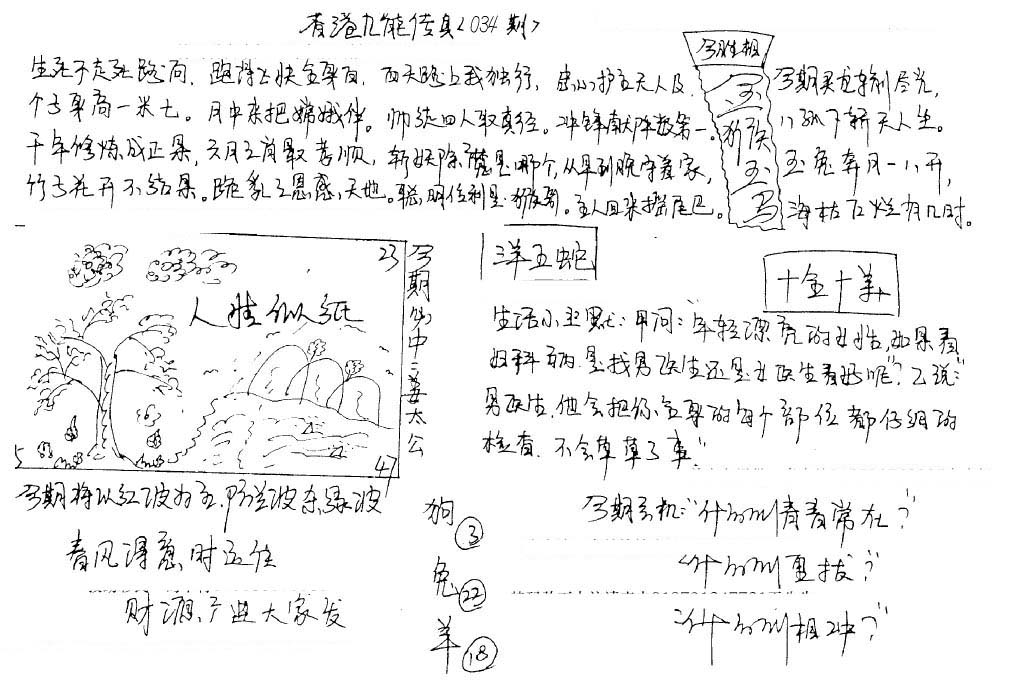 香港九龍传真<034期>
生死不走死路向、跑得比快全身白、西天路上我独行、忠心护主天人及、
个子身高一米七。月中来把嫦娥伴。师徒四人取真经。冲锋献阵数第一。
千年修炼成正果,三月三前最苦顺,斩妖除魔是哪个,从早到晚守着家,
竹子花开不结果。跪乳之恩感天地。聪明伶利是猴哥。主人回来摇尾巴。
今期生相
玉
猴
玉
马
今期买龙輸尽光,
八狐下轿天人生。
玉兔奔月一八开,
海枯石烂有几时。
23
人生似纸
5
47
今期仙中:姜太公
三羊五蛇
十全十美
生活小幽默:甲问:"年轻漂亮的女性,如果看
妇科病.是找男医生还是女医生看好呢"?乙说:"
男医生.他会把你全身的每个部位都仔细的
检查.不会草草了事"
今期将以红波为主.防兰波杀绿波
春风得意时运佳
财源产业大家发
狗③
兔㉒
羊⑱
今期玄机:"什么叫青春常在?"
"什么叫重拔?"
"什么叫相冲?"